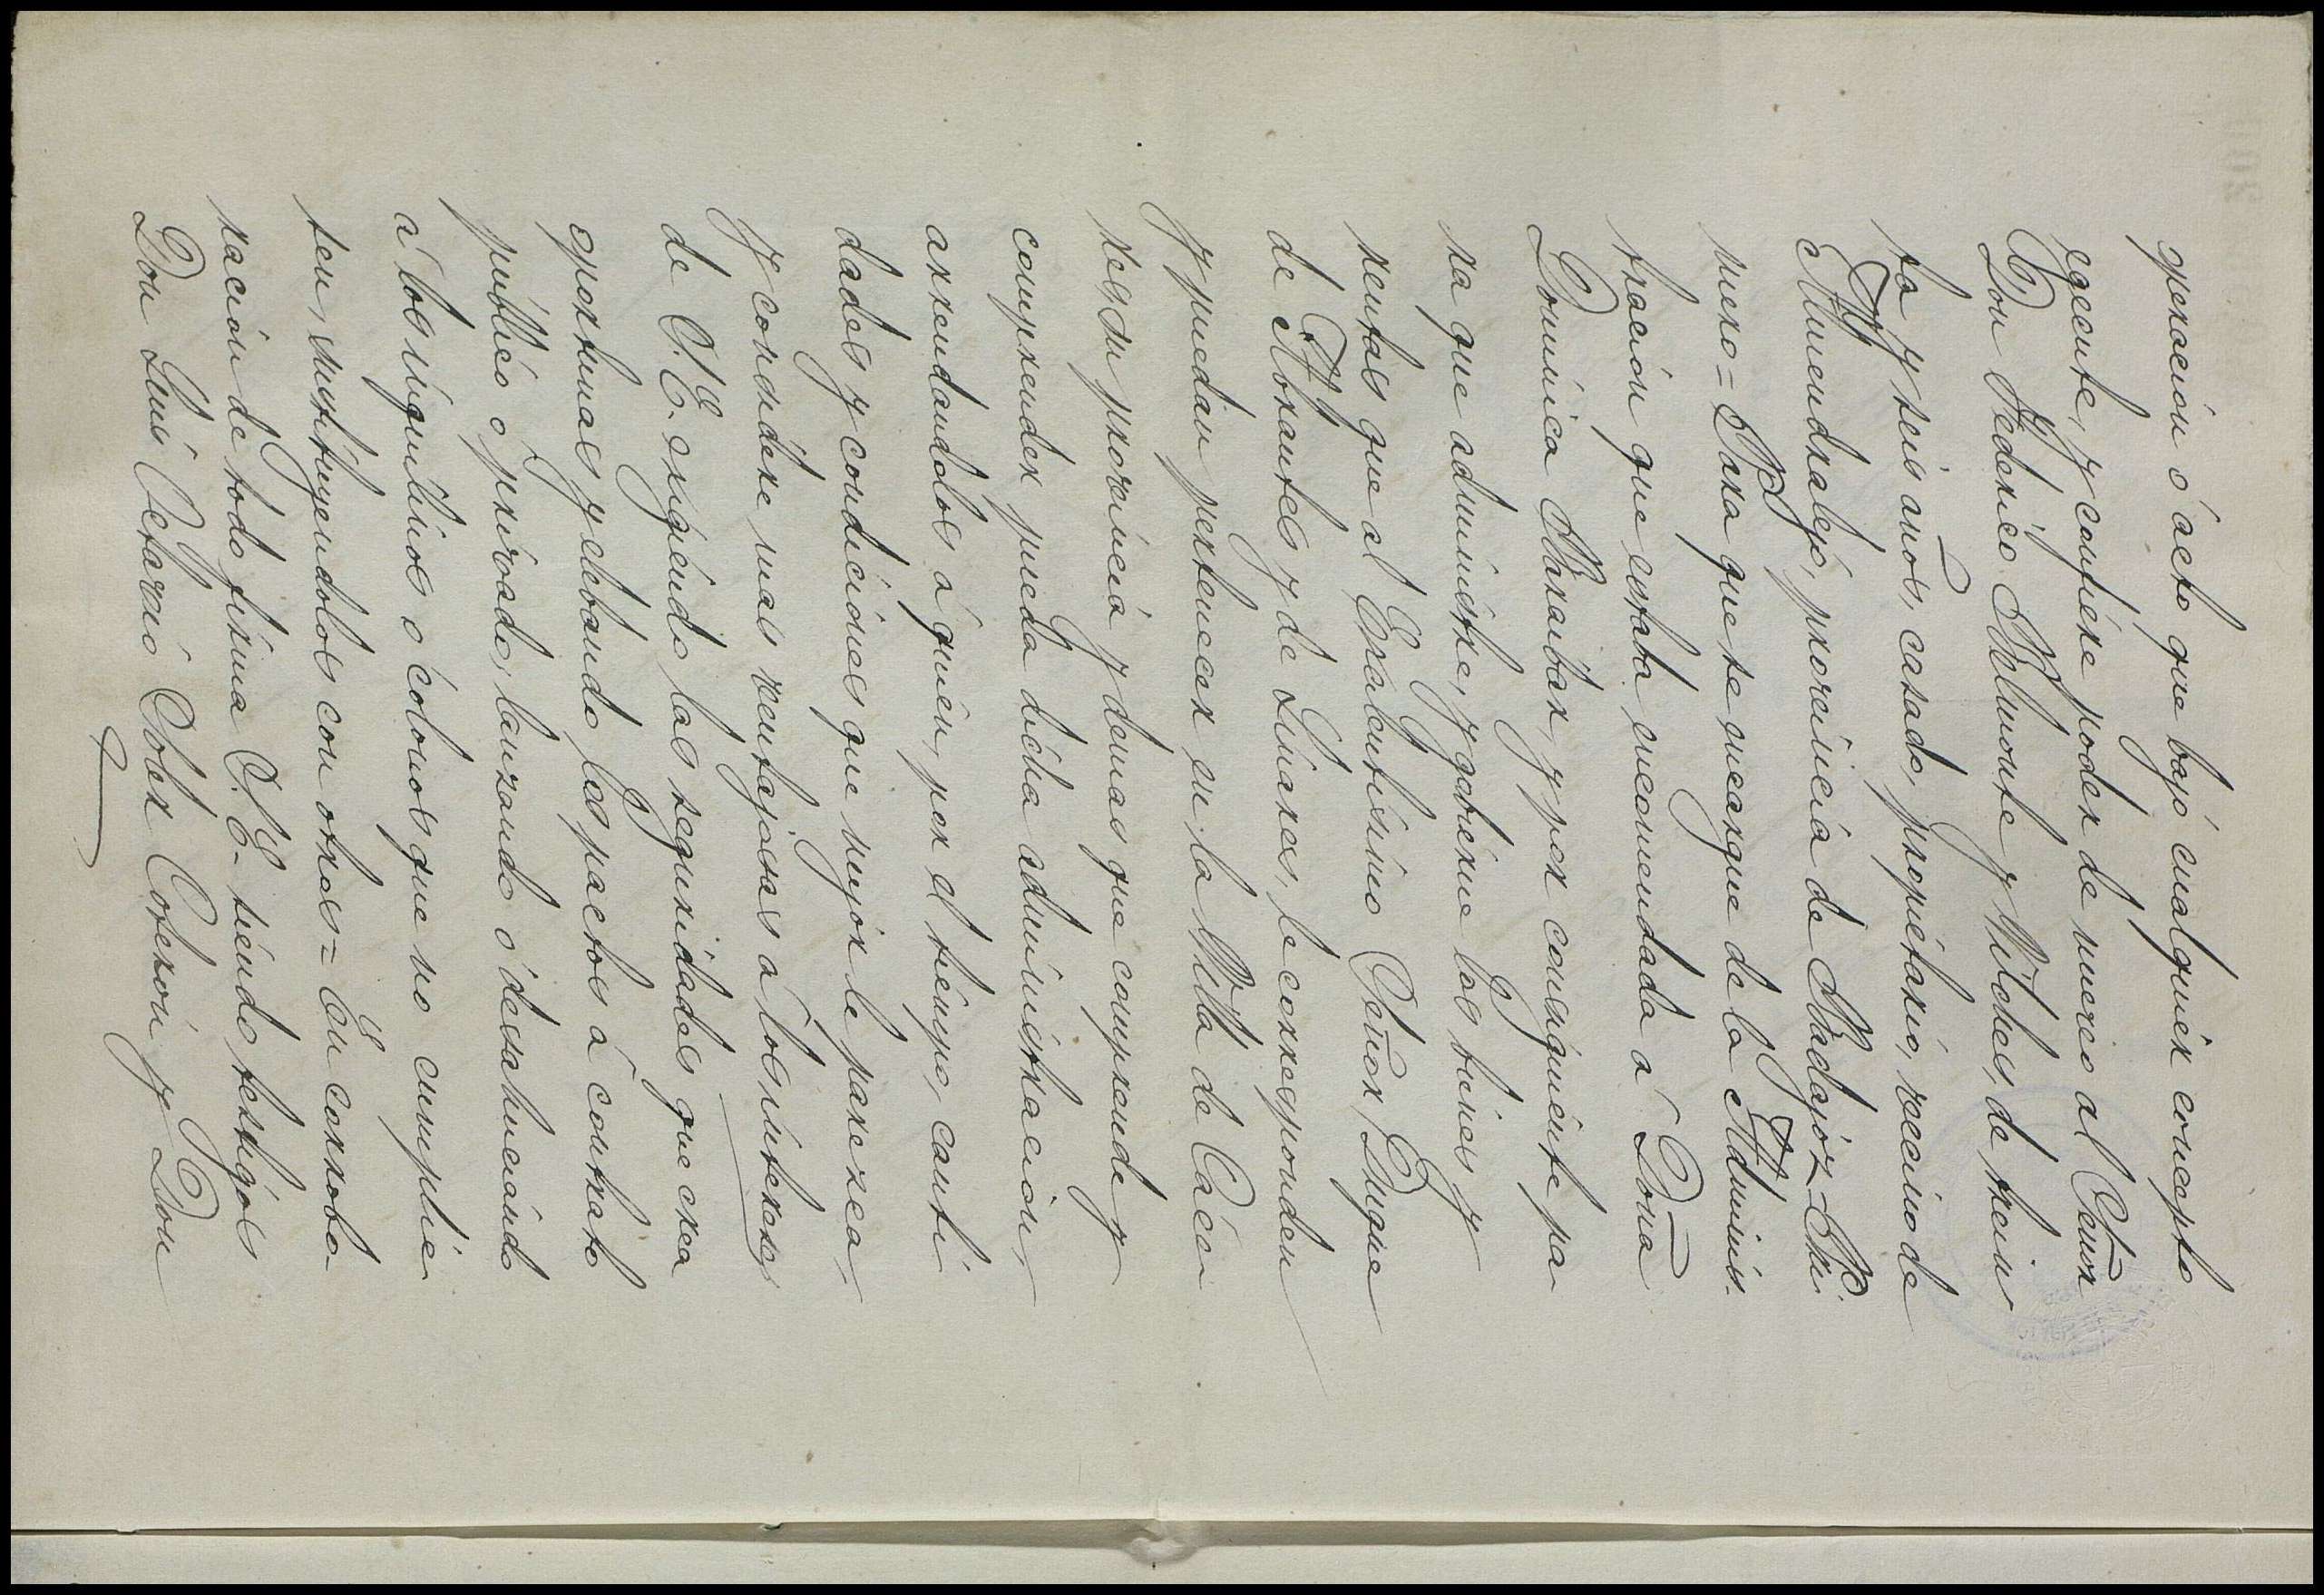 operación ó acto que bajo cualquier concepto
egecute, y confiere poder de nuevo al Señor
Don Federico Belmonte y Vilches, de trein
ta y seis años, casado, propietario, vecino de
Almendralejo, provincia de Badajóz = Pri
mero = Para que se encargue de la Adminis-
tración que estaba encomendada á Doña
Dominica Baraibar, y por consiguiente pa
ra que administre, y gobierne los bienes y
rentas que al Exalentísimo Señor, Duque
de Abrantes y de Linares, le corresponden
y puedan pertenecer en la Villa de Cáce-
res su provincia y demas que comprende y
comprender pueda dicha administracion,
arrendandolos á quien, por el tiempo, canti
dades y condiciones que mejor le parezca
y considere mas ventajosas á los intereses
de S. E. exigiendo las seguridades que crea
oportunas y elebando los pactos á contrato
público ó privado, lanzando ó desahuciando
á los inquilinos o colonos que no cumplie-
ren, sustituyendolos con otros = En corrobo
ración de todo firma S. E. siendo testigos
Don Luis Octavio Soler Coteron y Don